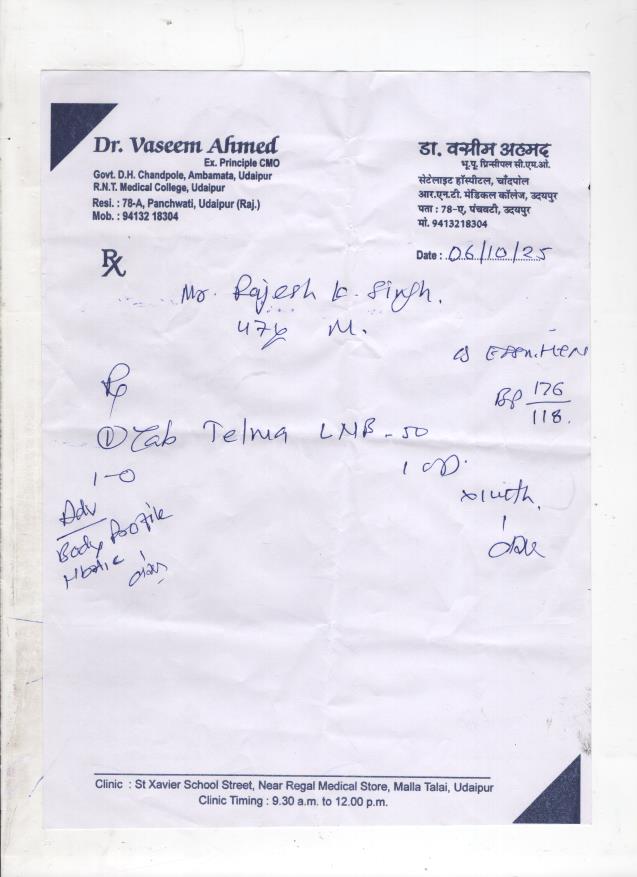 Dr. Vaseem Ahmed
Ex. Principle CMO
Govt. D.H. Chandpole, Ambamata, Udaipur
R.N.T. Medical College, Udaipur
Resi. : 78-A, Panchwati, Udaipur (Raj.)
Mob. : 94132 18304
डा. वसीम अहमद
भू.पू. प्रिन्सीपल सी.एम.ओ.
सेटेलाइट हॉस्पीटल, चाँदपोल
आर.एन.टी. मेडिकल कॉलेज, उदयपुर
पता : 78-ए, पंचवटी, उदयपुर
मो. 9413218304
Date : 06/10/25
Rx
Mr. Rajesh K. Singh.
47y M.
BP 176/118.
Rx
① Tab Telma LNB-50
1 OD.
1-0
Adv
Body Profile
Clinic : St Xavier School Street, Near Regal Medical Store, Malla Talai, Udaipur
Clinic Timing : 9.30 a.m. to 12.00 p.m.